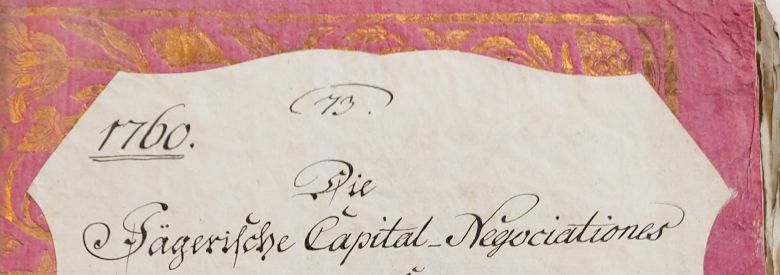 73.
1760.
Die
Jägerische Capital-Negociationes